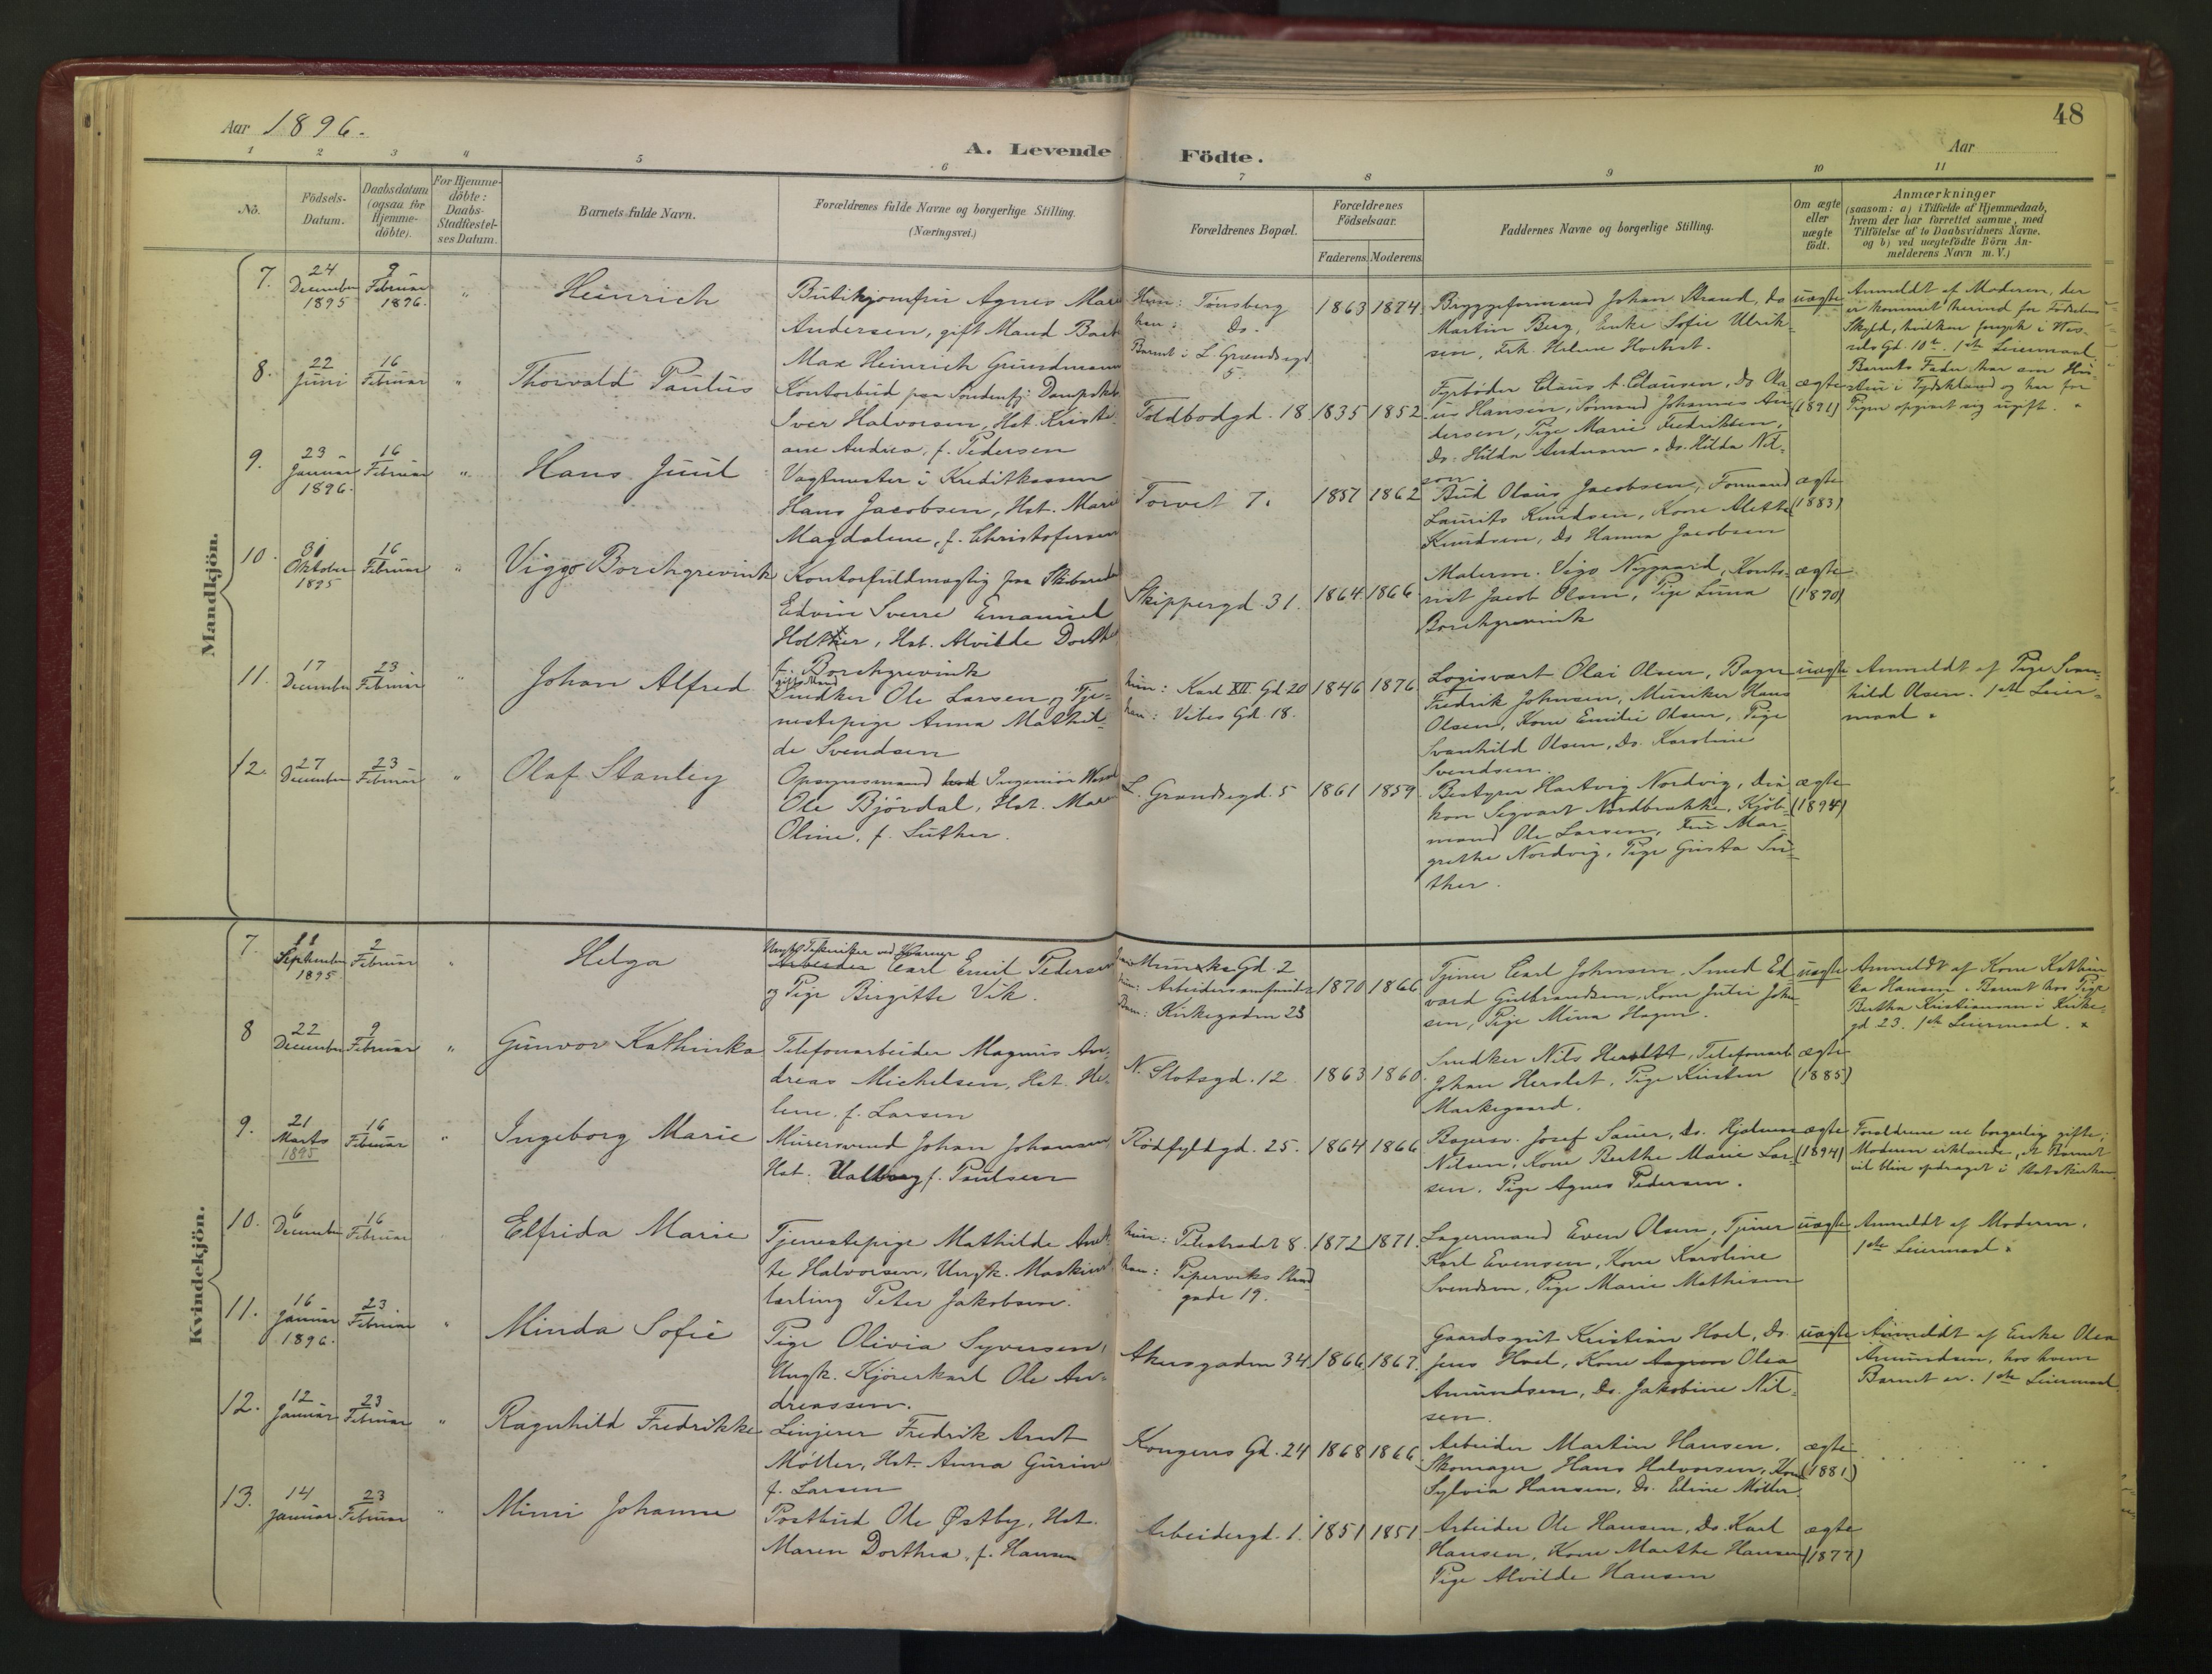 Aar 1896.
A. Levende Födte.
Aar
48
1 2 3 4 5 6 7 8 9 10 11
No.
Födsels-
Datum.
Daabsdatum
(ogsaa for
Hjemme-
döbte).
For Hjemme-
döbte:
Daabs-
Stadfæstel-
ses Datum.
Barnets fulde Navn.
Forældrenes fulde Navne og borgerlige Stilling.
(Næringsvei.)
Forældrenes Bopæl.
Forældrenes
Födselsaar.
Faderens. Moderens.
Faddernes Navne og borgerlige Stilling.
Om ægte
eller
uægte
födt.
Anmærkninger
(saasom: a) i Tilfælde af Hjemmedaab,
hvem der har forrettet samme, med
Tilföielse af to Daabsvidners Navne,
og b) ved uægtefödte Börn An-
melderens Navn m. V.)
Mandkjön.
7.
24
December
1895
9
Februar
1896.
"
Heinrich
Butikjomfru Agnes Mari
Andersen, gift Mand
Max Heinrich Grundmann
Hun: Tønsberg
han: Do.
Barnet i L. Grændsegd
5.
1863 1874
Bryggeformand Johan Strand, do
Martin Berg, Enke Sofie Ulrik-
sen, Frk. Helene
uægte
Anmeldt af Moderen, der
er kommet herind for Fødselens
Skyld, hvilken foregik i
Gd. 10. 1ste Leiermaal.
Barnets Fader har en Hu-
stru i Tydskland og har for
Pigen opgivet sig ugift. "
8.
22
Juni
16
Februar
"
Thorvald Paulus
Kontorbud paa Søndenfj. Dampskib
Iver Halvorsen, Hst. Kristi-
ane Andrea, f. Pedersen
Toldbodgd. 18
1835 1852
Fyrbøder Claus A. Clausen, do Ola-
us Hansen, Sømand Johannes An-
dersen, Pige Marie Fredriksen,
do. Hilda Andersen, do. Hilda Nil-
sen.
ægte
(1891)
9.
23
Januar
1896.
16
Februar
"
Hans Juul
Vagtmester i Kreditkassen
Hans Jacobsen, Hst. Marie
Magdalene, f. Christofersen
Torvet 7.
1857 1862
Bud Olaus Jacobsen, Formand
Laurits Knudsen, Kone Alette
Knudsen, do Hanna Jacobsen
ægte
(1883)
10.
31
Oktober
1895
16
Februar
"
Viggo Borchgrevink
Kontorfuldmægtig paa
Edvin Sverre Emanuel
Holther, Hst. Alvilde Dorthe
f. Borchgrevink
Skippergd. 31.
1864 1866
Malerm. Vigo Nygaard, Konto-
rist Jacob Olsen, Pige Luna
Borchgrevink
ægte
(1890)
11.
17
December
23
Februar
"
Johan Alfred
gift Mand
Snedker Ole Larsen og Tje-
nestepige Anna Mathil-
de Svendsen
hun: Karl XII. Gd 20
han: Vibes Gd. 18.
1846 1876
Logisvært Olai Olsen, Bager
Fredrik Johnsen, Musiker Hans
Olsen, Kone Emilie Olsen, Pige
Svanhild Olsen, do. Karoline
Svendsen.
uægte
Anmeldt af Pige Svan-
hild Olsen. 1ste Leier-
maal "
12.
27
December
23
Februar
"
Olaf Stanley
Opsynsmand Ingeniør
Ole Björdal, Hst. Maren
Oline, f. Luther.
L. Grændsegd. 5
1861 1859
Bestyrer Hartvig Nordvig, Dia-
kon Sigvart Nordbrække, Kjöb-
mand Ole Larsen, Fru Mar-
grethe Nordvig, Pige Gusta Lu-
ther.
ægte
(1894)
Kvindekjön.
7.
11
September
1895
2
Februar
"
Helga
Ungk. Tekniker ved
Arbeider Carl Emil Pedersen
og Pige Birgitte Vik.
Gd. 2
hun: Arbeidersamfundet
Barn: Kirkegaden 23
1870 1866
Tjener Carl Johnsen, Smed Ed-
vard Gulbrandsen, Kone Julie John-
sen, Pige Mina Hagen.
uægte
Anmeldt af Kone Kathin-
ka Hansen. Barnet hos Pige
Bertha Kristiansen i Kirke-
gd 23. 1ste Leiermaal. "
8
22
December
9
Februar
"
Gunvor Kathinka
Telefonarbeider Magnus An-
dreas Michelsen, Hst. He-
lene. f. Larsen
N. Slotsgd. 12.
1863 1860
Snedker Nils, Telefonarb
Johan Herslet, Pige Kirsten
Markegaard.
ægte
(1885)
9.
21
Marts
1895
16
Februar
"
Ingeborg Marie
Murersvend Johan Johansen,
Hst. Valborg f. Paulsen
Rödfyldgd. 25.
1864 1866
Bagersv. Josef Sauer, do. Hjalmar
Nilsen, Kone Berthe Marie Lar-
sen, Pige Agnes Pedersen.
ægte
(1894)
Forældrene ere borgerlig gifte;
Moderen erklærede, at Barnet
vil blive opdraget i Statskirken.
10.
6
December
16
Februar
Elfrida Marie
Tjenestepige Mathilde
Halvorsen, Ungk. Maskin-
lærling Peter Jakobsen.
hun: Pilestrædet 8.
han: Piperviks Strand
gade 19.
1872 1871.
Lagermand Even Olsen, Tjener
Karl Evensen, Kone Karoline
Svendsen, Pige Marie Mathisen
uægte
Anmeldt af Moderen.
1ste Leiermaal "
11.
16
Januar
1896.
23
Februar
"
Minda Sofie
Pige Olivia Syversen,
Ungk. Kjörerkarl Ole An-
dreassen.
Akersgaden 34
1866 1867.
Gaardsgut Kristian Hoel, do.
Jens Hoel, Kone Olea
Amundsen, do. Jakobine Nil-
sen.
uægte
Anmeldt af Enke Olea
Amundsen, hos hvem
Barnet er. 1ste Leiermaal.
12.
12
Januar
23
Februar
"
Ragnhild Fredrikke
Linjerer Fredrik Arnt
Möller, Hst. Anna Gurine
f. Larsen
Kongens Gd. 24
1868 1866
Arbeider Martin Hansen.
Skomager Hans Halvorsen, Kone
Sylvia Hansen, do. Eline Möller.
ægte
(1881)
13.
14
Januar
23
Februar
"
Mimi Johanne
Postbud Ole Østby, Hst.
Maren Dorthea, f. Hansen
Arbeidergd. 1.
1851 1851
Arbeider Ole Hansen, do. Karl
Hansen, Kone Marthe Hansen
Pige Alvilde Hansen
ægte
(1877)